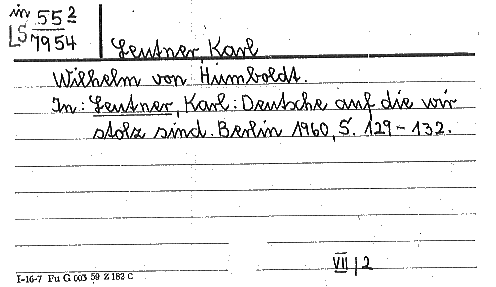 in 55 2
LS 7954
Leutner, Karl
Wilhelm von Humboldt.
In: Leutner, Karl: Deutsche auf die wir
stolz sind. Berlin 1960, S. 129-132.
VII/2
I-16-7 Fu G 003 59 Z 182 C